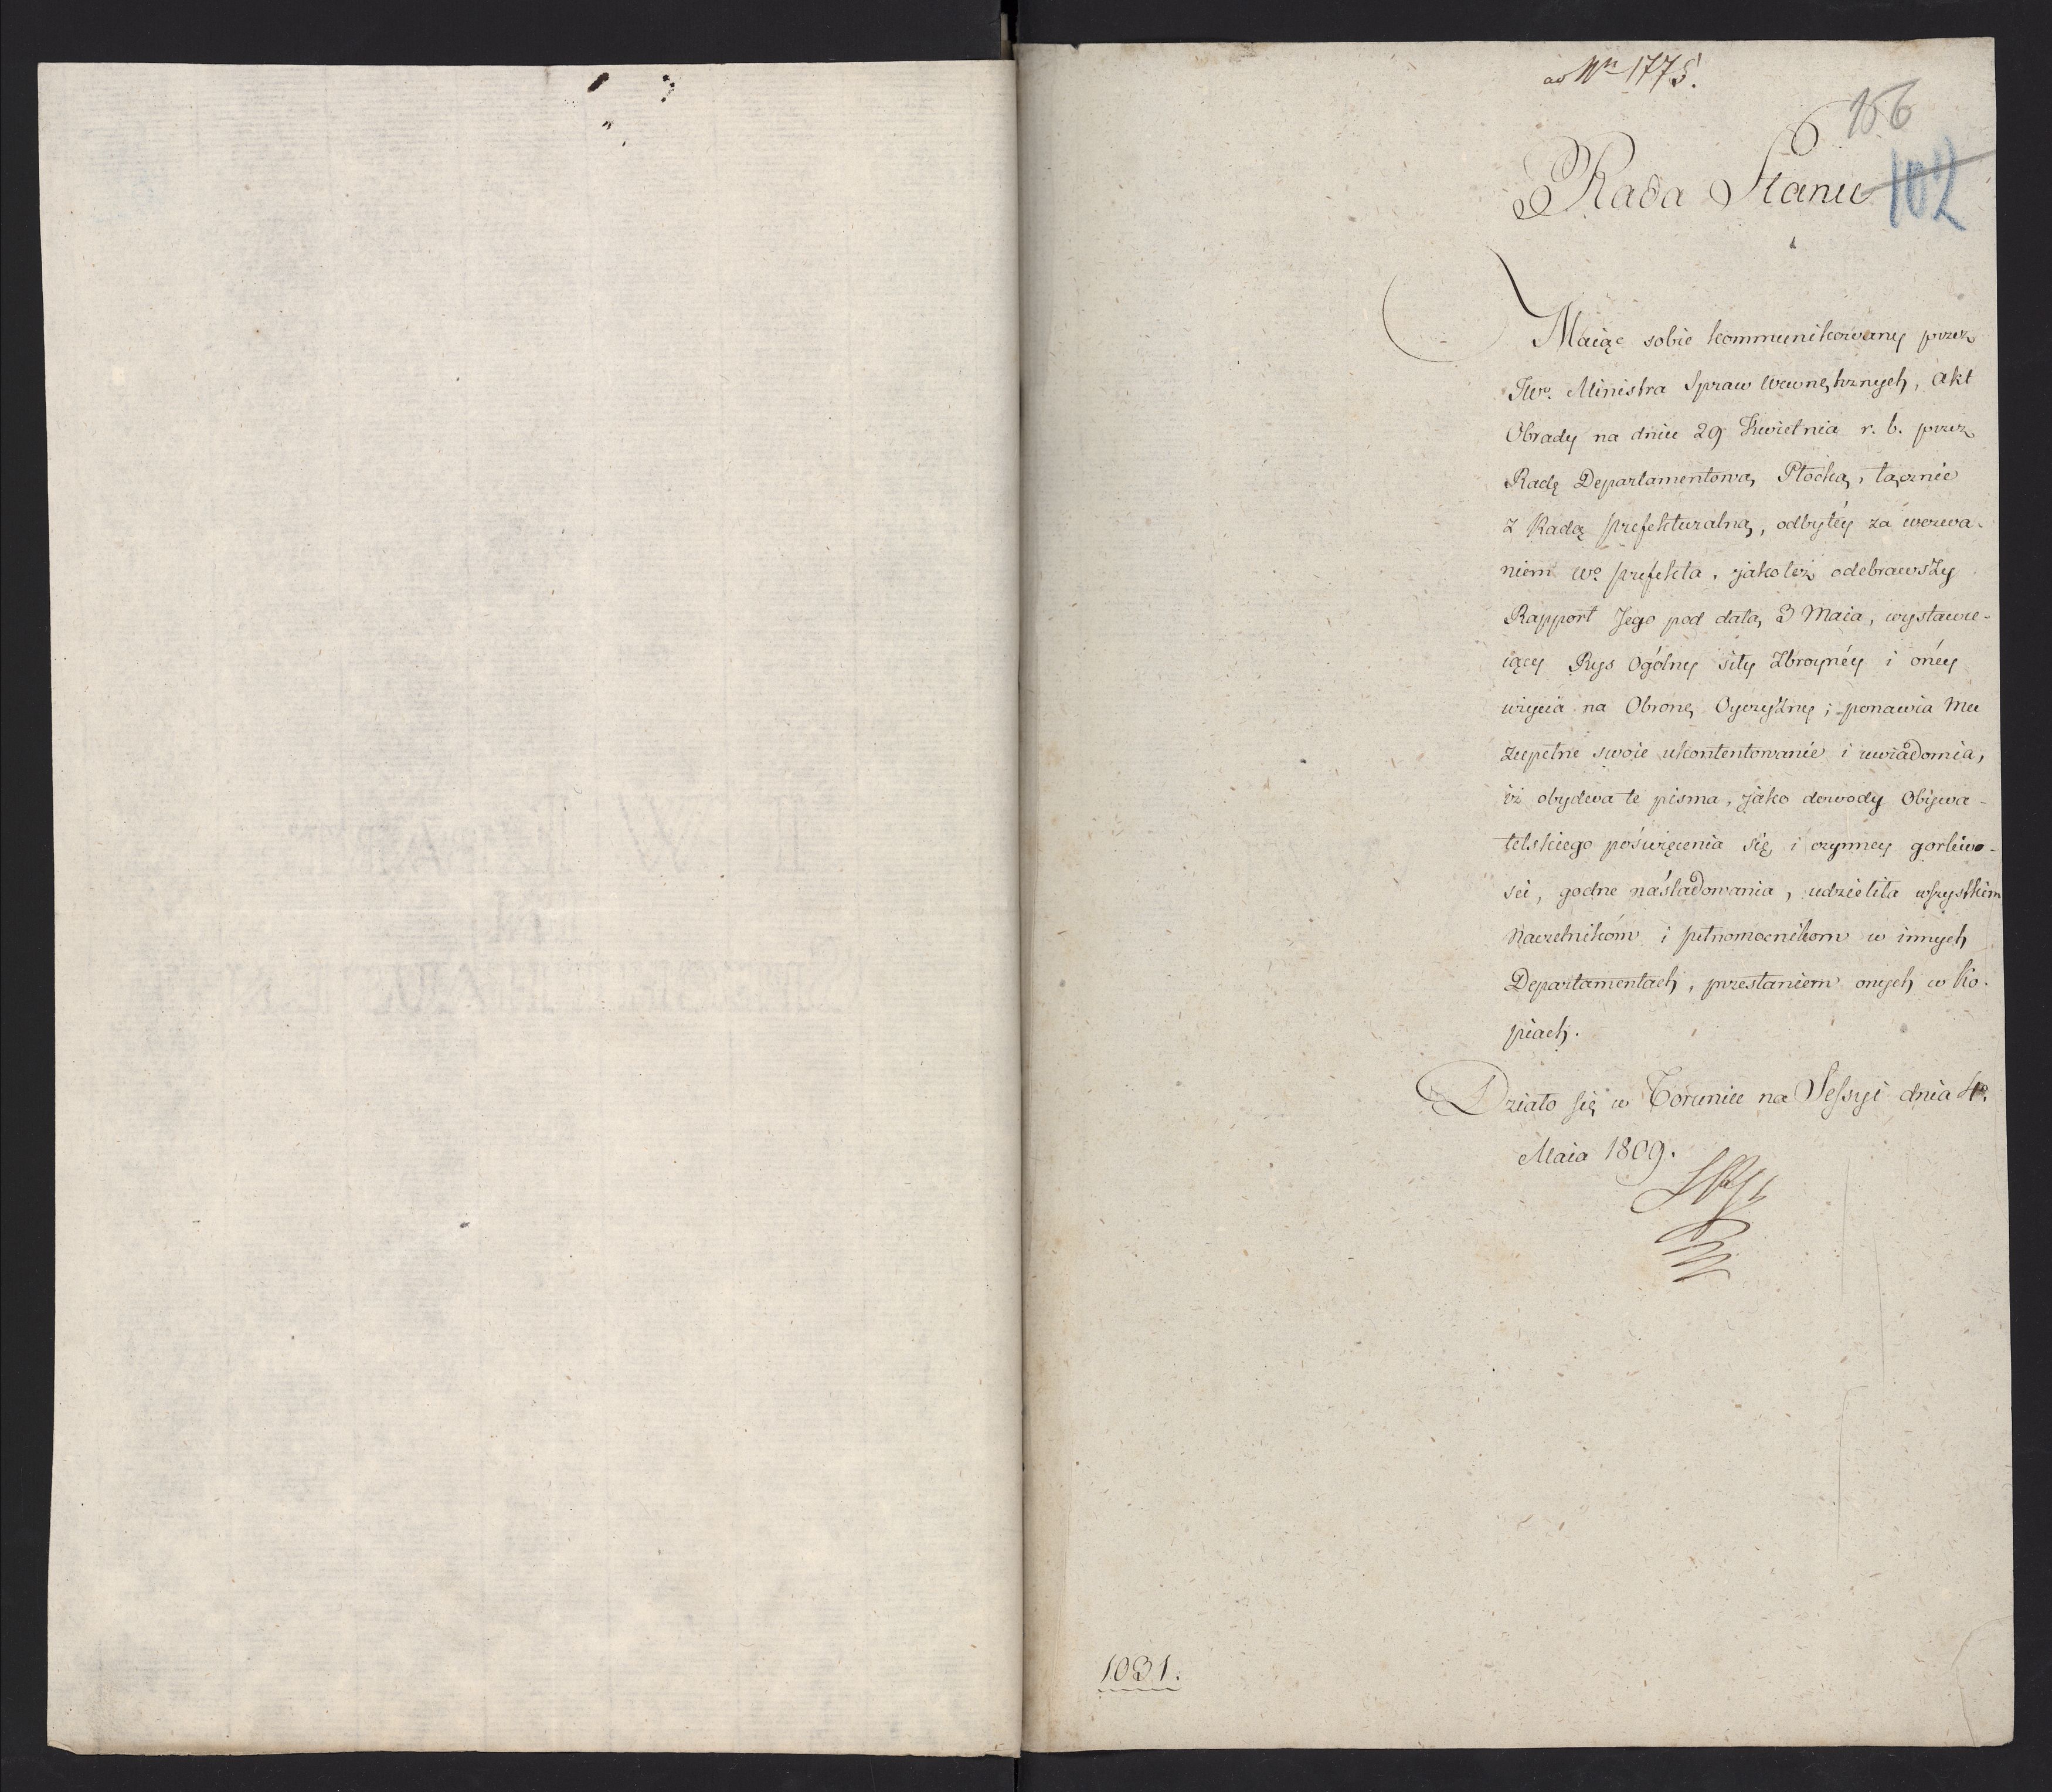 ad Nrı 1775.
106
102
Rada Stanu
Maiąc sobie kommunikowany przez
JWo. Ministra Spraw Wewnętrznych, Akt
Obrady na dniu 29 Kwietnia r. b. przez
Radę Departamentową Płocką, łącznie
z Radą prefekturalną, odbytéy za wezwa-
niem Wo prefekta, jakoteż odebrawszy
Rapport Jego pod datą 3 Maia, wystawu-
iący Rys Ogólny siły Zbroynéy i onéy
użycia na Obronę Oyczyzny; ponawia Mu
zupełne swoie ukontentowanie i uwiadomia,
iż obydwa te pisma, jako dowody Obywa-
telskiego poświęcenia się i czynney gorliwo-
sci, godne naśladowania, udzieliła wszystkim
Naczelnikom i pełnomocnikom w innych
Departamentach, przesłaniem onych w ko-
piach.
Działo się w Toruniu na Sessyi dnia 4o.
Maia 1809.
1031.